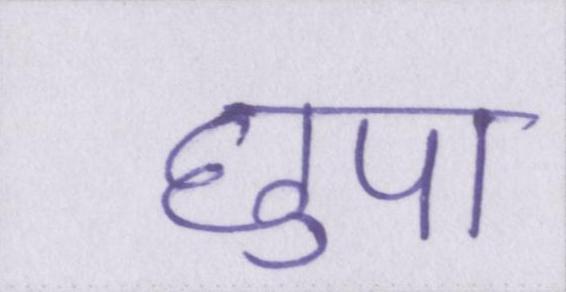 छुपा